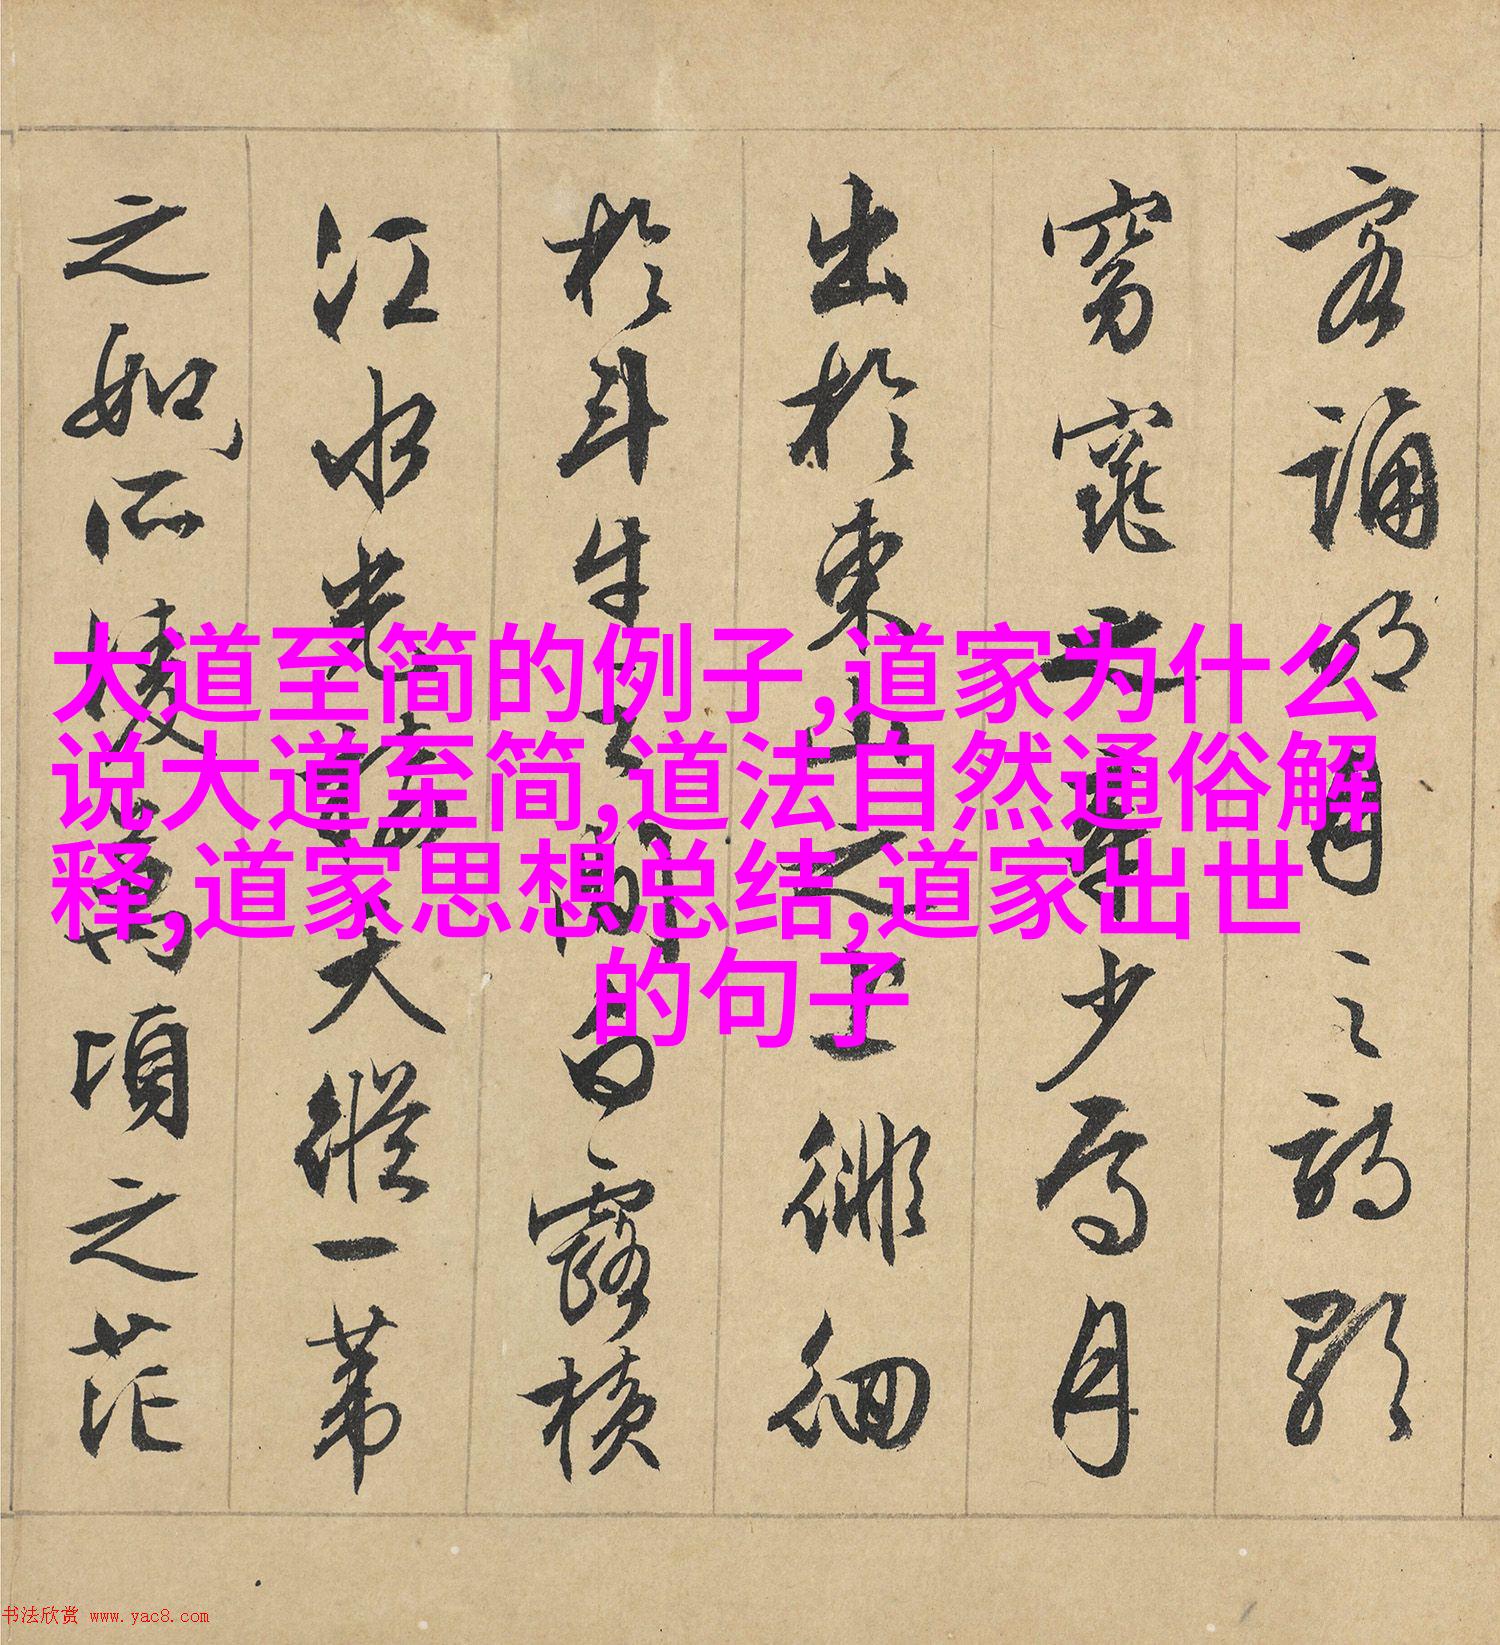 客誦明月之詩歌
窈窕之章少焉月
出於東山之上徘徊
於斗牛之間白露橫
江水光接天縱一葦
之如所陵萬頃之茫
大道至简的例子,道家为什么
说大道至简,道法自然通俗解
释,道家思想总结,道家出世
的句子
书法欣赏 www.yac8.com